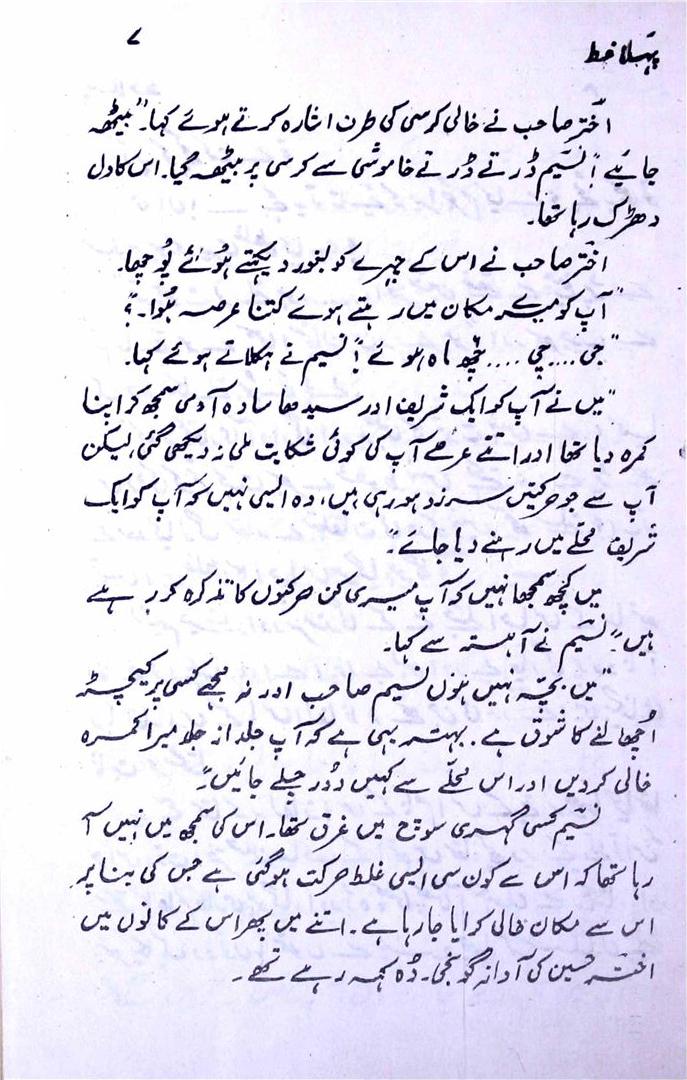 پہلا خط ۷
اختر صاحب نے خالی کرسی کی طرف اشارہ کرتے ہوئے کہا۔ "بیٹھ
جائیے"! نسیم ڈرتے ڈرتے خاموشی سے کرسی پر بیٹھ گیا۔ اس کا دل
دھڑک رہا تھا۔
اختر صاحب نے اس کے چہرے کو بغور دیکھتے ہوئے پوچھا۔
"آپ کو میرے مکان میں رہتے ہوئے کتنا عرصہ ہُوا۔؟
"جی .... جی .... چھ ماہ ہوئے"! نسیم نے ہکلاتے ہوئے کہا۔
"میں نے آپ کو ایک شریف اور سیدھا سادہ آدمی سمجھ کر اپنا
کمرہ دیا تھا اور اتنے عرصے آپ کی کوئی شکایت ملی نہ دیکھی گئی، لیکن
آپ سے جو حرکتیں سرزد ہو رہی ہیں، وہ ایسی نہیں کہ آپ کو ایک
شریف محلے میں رہنے دیا جائے"۔
میں کچھ سمجھا نہیں کہ آپ میری کن حرکتوں کا تذکرہ کر رہے
ہیں"۔ نسیم نے آہستہ سے کہا۔
"میں بچّہ نہیں ہوں نسیم صاحب اور نہ مجھے کسی پر کیچڑ
اُچھالنے کا شوق ہے۔ بہتر یہی ہے کہ آپ جلد از جلد میرا کمرہ
خالی کر دیں اور اس محلّے سے کہیں دُور چلے جائیں"۔
نسیم کسی گہری سوچ میں غرق تھا۔ اس کی سمجھ میں نہیں آ
رہا تھا کہ اس سے کون سی ایسی غلط حرکت ہو گئی ہے جس کی بنا پر
اس سے مکان خالی کرایا جا رہا ہے۔ اتنے میں پھر اس کے کانوں میں
اختر حسین کی آواز گونجی۔ وُہ کہہ رہے تھے۔